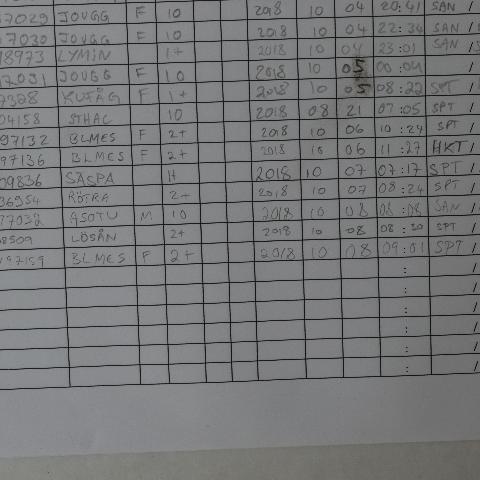 7029 JOUGG F 10 2018 10 04 20:41 SAN /
7030 JOUGG F 10 2018 10 04 22:34 SAN /
18973 LYMIN 1+ 2018 10 04 23:01 SAN /S
7031 JOUGG F 10 2018 10 05 00:04 /
7328 F 1+ 2018 10 05 08:22 SPT /
04158 STHAC 10 2018 08 21 07:05 SPT /
97132 BLMES F 2+ 2018 10 06 10:24 SPT /
97136 BLMES F 2+ 2018 10 06 11:27 HKT /
09836 SASPA 1+ 2018 10 07 07:17 SPT /
36954 RÖTRA 2+ 2018 10 07 08:24 SPT /
77032 ASOTU M 10 2018 10 08 08:08 SAN /
8509 LÖSÅN 2+ 2018 10 08 08:20 SPT /
197159 BLMES F 2+ 2018 10 08 09:01 SPT /
: /
: /
: /
: /
: /